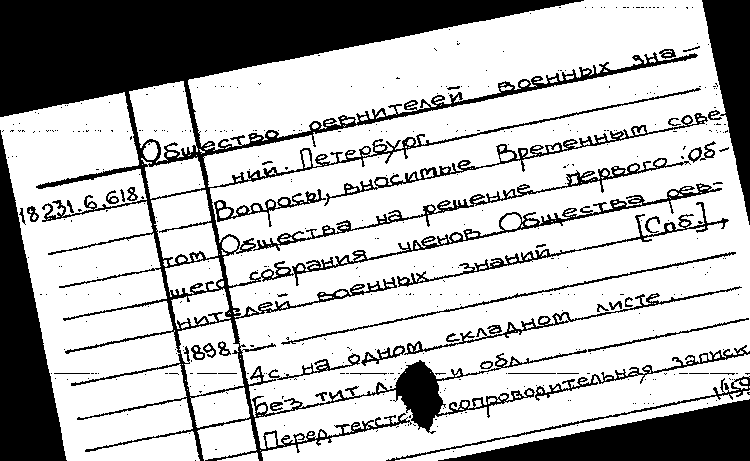 Общество ревнителей военных зна-
ний. Петербург.
18231.6.618.
Вопросы, вносимые Временным сове-
том Общества на решение первого Об-
щего собрания членов Общества рев-
нителей военных знаний. [Спб.],
1898.
4с. на одном складном листе.
Без тит.л. и обл.
Перед текстом сопроводительная записк